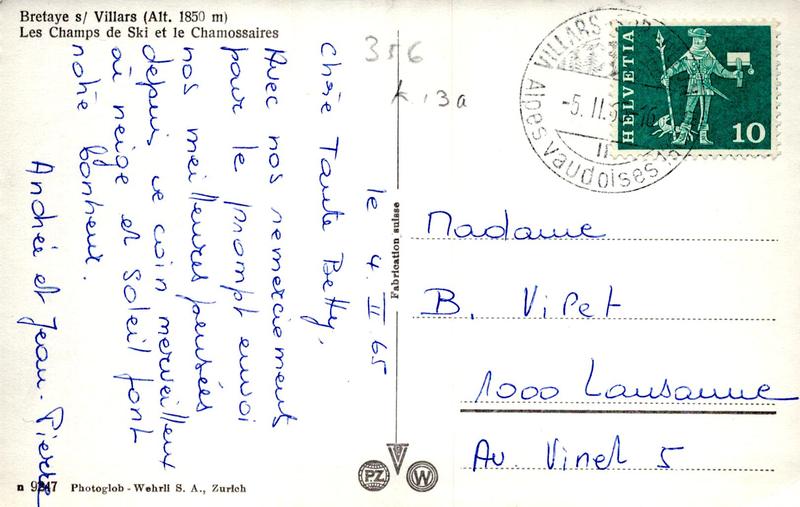 Bretaye s/ Villars (Alt. 1850 m)
Les Champs de Ski et le Chamossaires
356
K 13a
le 4 II 65
Chère Tante Betty,
Avec nos remerciements
pour le prompt envoi
nos meilleures pensées
depuis ce coin merveilleux
où neige et soleil font
notre bonheur.
Andrée et Jean-Pierre
Fabrication suisse
VILLARS
-5.II.
Alpes vaudoises
HELVETIA
10
Madame
B. Vipet
1000 Lausanne
Av. Vinet 5
PZ
W
n 9247 Photoglob-Wehrli S. A., Zurich